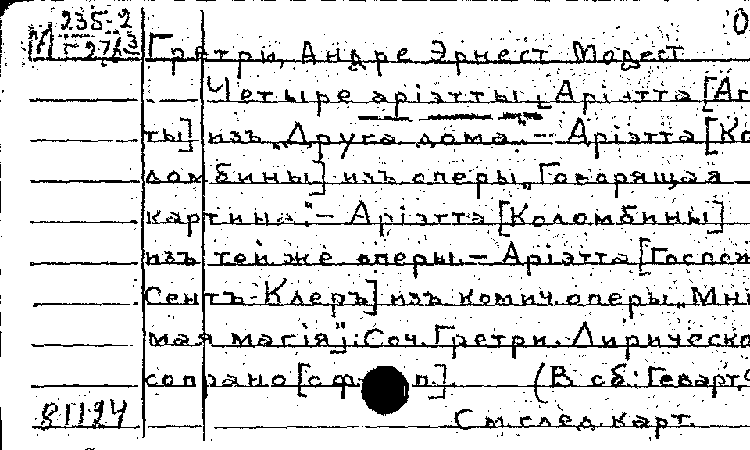 М 235-2
Гретри, Андре Эрнест Модест
Четыре аріэтты: Аріэтта [Аг
ты] изъ „Друга дома". – Аріэтта [Ко
ломбины] изъ оперы „Говорящая
картина". – Аріэтта [Коломбины]
изъ той же оперы. – Аріэтта [Госпож
Сентъ-Клеръ] изъ комич. оперы „Мни
мая магія"]: Соч. Гретри. Лирическо
сопрано [с ф. п.]. (В сб: Геварт,
81124
См. след. карт.